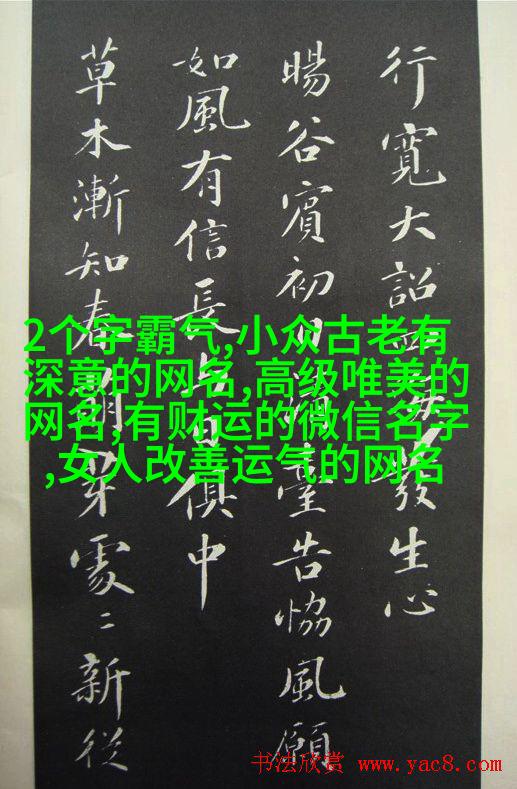 行寬大詔發生心
暘谷賓初日臺告協風願
如風有信長與日俱中
草木漸知春萌芽處〻新從
2个字霸气,小众古老有
深意的网名,高级唯美的
网名,有财运的微信名字
,女人改善运气的网名
书法欣赏 www.yac8.com